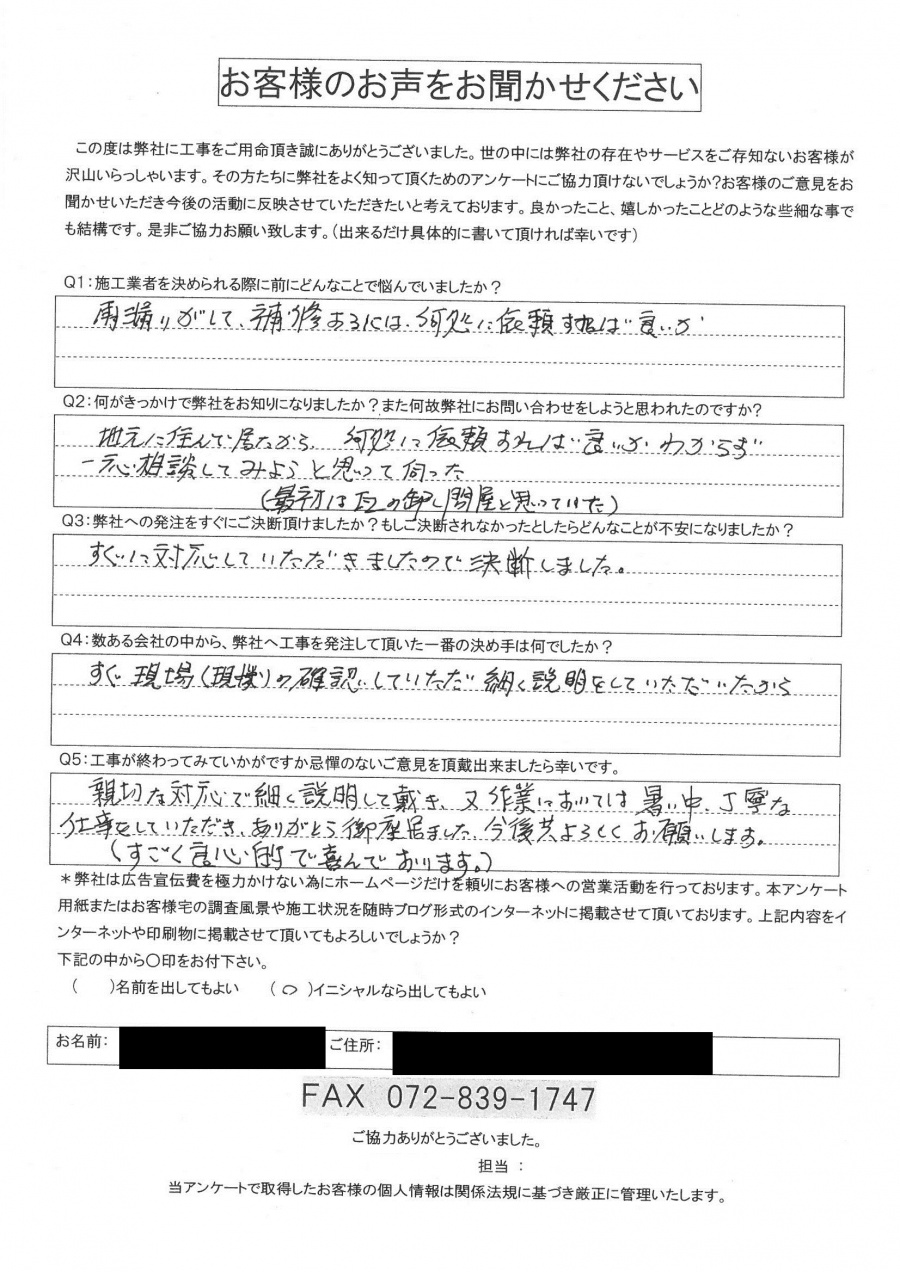 お客様のお声をお聞かせください
この度は弊社に工事をご用命頂き誠にありがとうございました。世の中には弊社の存在やサービスをご存知ないお客様が
沢山いらっしゃいます。その方たちに弊社をよく知って頂くためのアンケートにご協力頂けないでしょうか?お客様のご意見をお
聞かせいただき今後の活動に反映させていただきたいと考えております。良かったこと、嬉しかったことどのような些細な事で
も結構です。是非ご協力お願い致します。(出来るだけ具体的に書いて頂ければ幸いです)
Q1:施工業者を決められる際に前にどんなことで悩んでいましたか?
雨漏りがして、補修するには、何処に依頼すれば良いか
Q2:何がきっかけで弊社をお知りになりましたか?また何故弊社にお問い合わせをしようと思われたのですか?
地元に住んで居たから、何処に依頼すれば良いかわからず
一応相談してみようと思って伺った
(最初は瓦の卸し問屋と思っていた)
Q3:弊社への発注をすぐにご決断頂けましたか?もしご決断されなかったとしたらどんなことが不安になりましたか?
すぐに対応していただきましたので決断しました。
Q4:数ある会社の中から、弊社へ工事を発注して頂いた一番の決め手は何でしたか?
すぐ現場(現摸)の確認していただ細く説明をしていただいたから
Q5:工事が終わってみていかがですか忌憚のないご意見を頂戴出来ましたら幸いです。
親切な対応で細く説明して戴き、又作業においては暑い中、丁寧な
仕事をしていただき、ありがとう御座居ました、今後共よろしくお願いします。
(すごく良心的で喜んでおります。)
*弊社は広告宣伝費を極力かけない為にホームページだけを頼りにお客様への営業活動を行っております。本アンケート
用紙またはお客様宅の調査風景や施工状況を随時ブログ形式のインターネットに掲載させて頂いております。上記内容をイ
ンターネットや印刷物に掲載させて頂いてもよろしいでしょうか?
下記の中から〇印をお付下さい。
( )名前を出してもよい (〇)イニシャルなら出してもよい
お名前: ご住所:
FAX 072-839-1747
ご協力ありがとうございました。
担当:
当アンケートで取得したお客様の個人情報は関係法規に基づき厳正に管理いたします。